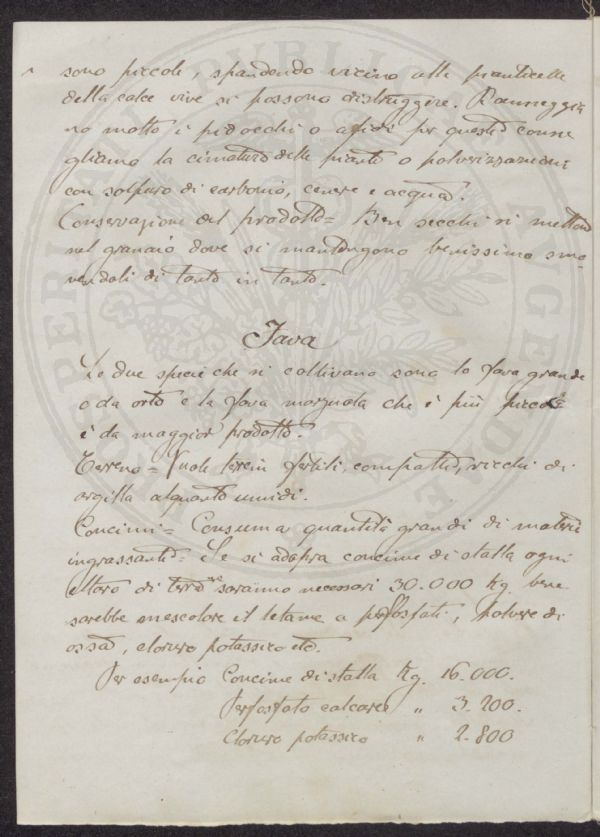 sono piccole, spandendo vicino alle pianticelle
della calce vive si possono distruggere. Danneggia
no molto i pidocchi o afidi per questo consi
gliamo la cimatura delle piante o polverizzazioni
con solfuro di carbonio, cenere e acqua.
Conservazione del prodotto = Ben secchi si mettono
nel granaio dove si mantengono benissimo smo-
vendoli di tanto in tanto.
Fava
Le due specie che si coltivano sono la fava grande
o da orto e la fava marzuola che è più piccola
è da maggior prodotto.
Terreno = Vuole terreni fertili, compatti, ricchi di
argilla alquanto umidi.
Concimi = Consuma quantità grandi di materie
ingrassanti = Se si adopra concime di stalla ogni
ettaro di terra saranno necessari 30.000 Kg. bene
sarebbe mescolare il letame a perfosfati, polvere di
ossa, cloruro potassico etc.
Per esempio Concime di stalla Kg. 16.000.
Perfosfato calcareo " 3.200.
Cloruro potassico " 2.800
VT PROSPERITATI PVBLICAE AVGENDAE